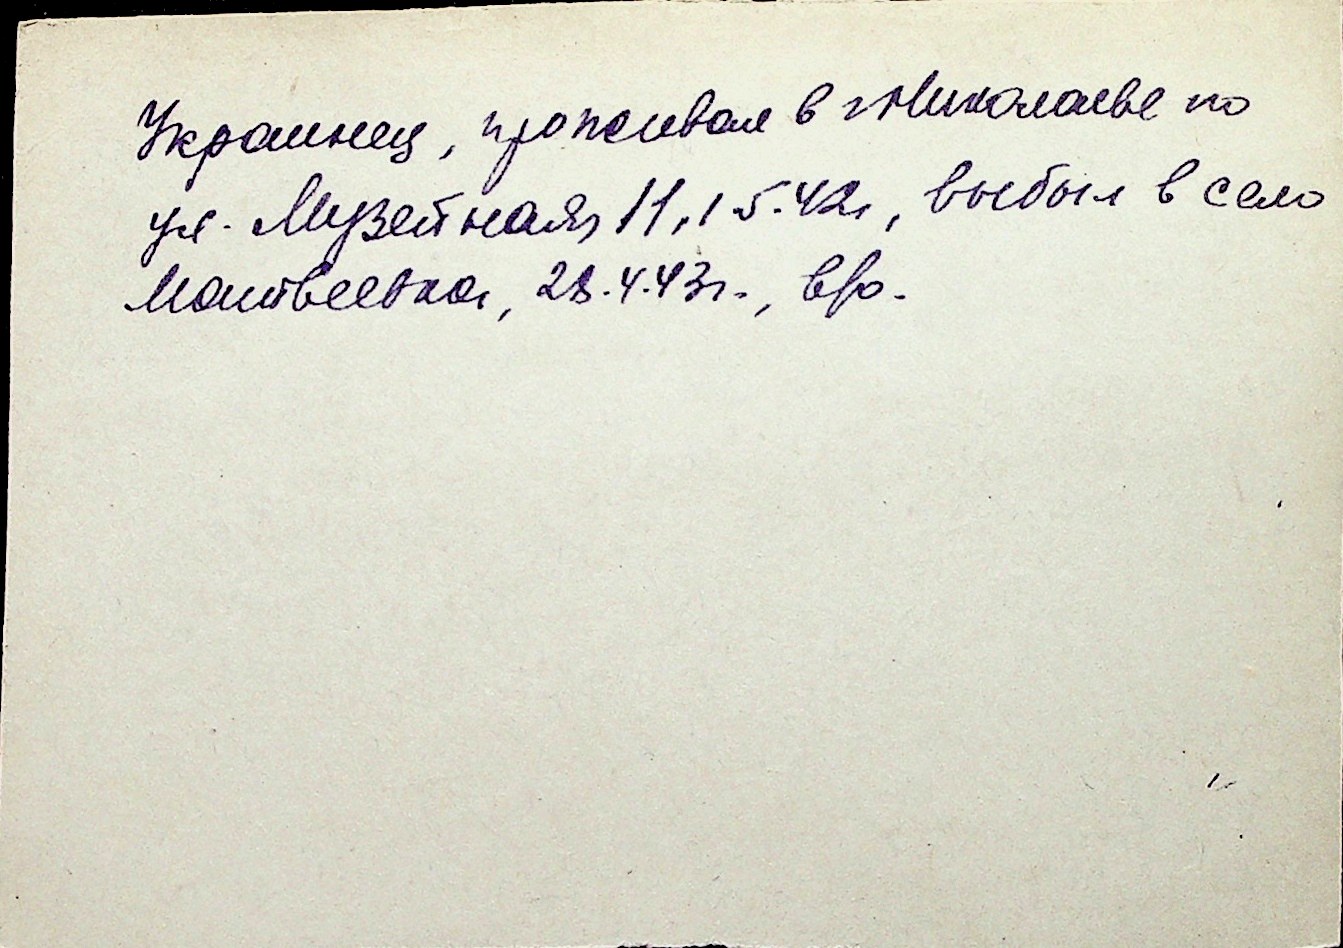 Украинец, проживал в г. Николаеве по
ул. Музейная, 11, 1.5.42г, выбыл в село
Матвеевка, 28.4.43г.,